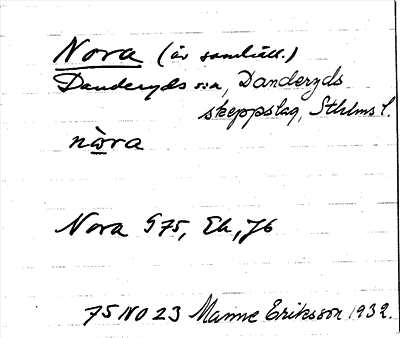 Nora (är samhäll.)
Danderyds sn, Danderyds
skeppslag, Sthlms l.
nὰra
Nora G75, Ek, Jb
75 NO 23 Manne Eriksson 1932.